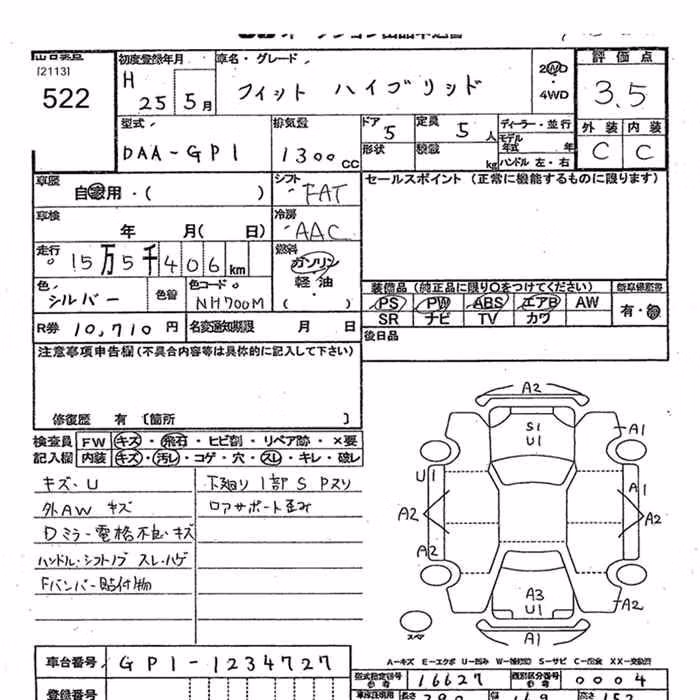 初度登録年月 車名・グレード 評価点
[2113]
522
H 25年 5月
フィット ハイブリッド
2WD
・4WD
3.5
型式 排気量 ドア 定員 ディーラー・並行 外装 内装
DAA-GP1 1300cc 5 5人 モデル年式 年 C C
形状 積載 kg ハンドル 左・右
車歴 自家用・( ) シフト FAT セールスポイント (正常に機能するものに限ります)
車検 年 月( 日) 冷房 AAC
走行 15万5千406km 燃料 ガソリン
軽油
・( )
色 シルバー 色替 色コード NH700M
装備品(純正品に限り○をつけてください)
PS PW ABS エアB AW 有・無
SR ナビ TV カワ
R券 10,710円 名変通知期限 月 日 後日品
注意事項申告欄(不具合内容等は具体的に記入して下さい)
修復歴 有 〔箇所 〕
検査員 FW キズ・飛石・ヒビ割・リペア跡・×要
記入欄 内装 キズ・汚レ・コゲ・穴・スレ・キレ・破レ
キズ・U 下廻り 1部 S Pスリ
外AW キズ ロアサポート歪み
Dミラー電格不良・キズ
ハンドル・シフトノブ スレ・ハゲ
Fバンパー貼付物
A2
S1
U1
A1
U1
A1
A2
A2
A2
A3
U1
A2
A1
スペア
A-キズ E-エクボ U-凹み S-サビ C-腐食
車台番号 GP1-1234727
型式指定番号 16627 類別区分番号 0004
登録番号